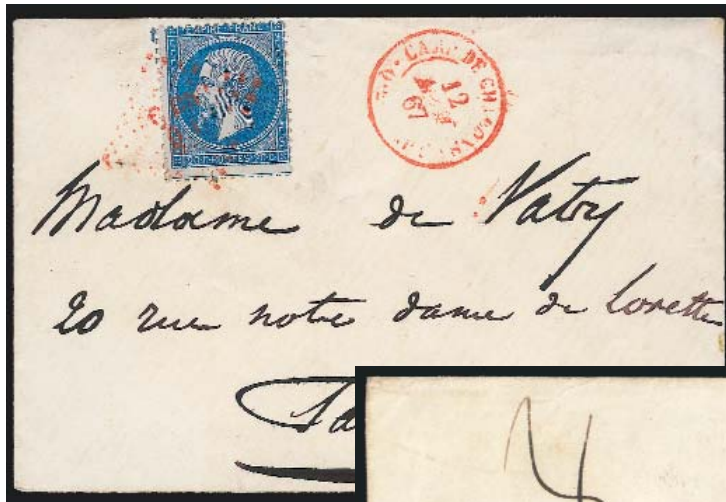 EMPIRE FRANC
12
67
Madame de Vatry
20 rue notre dame de Lorette